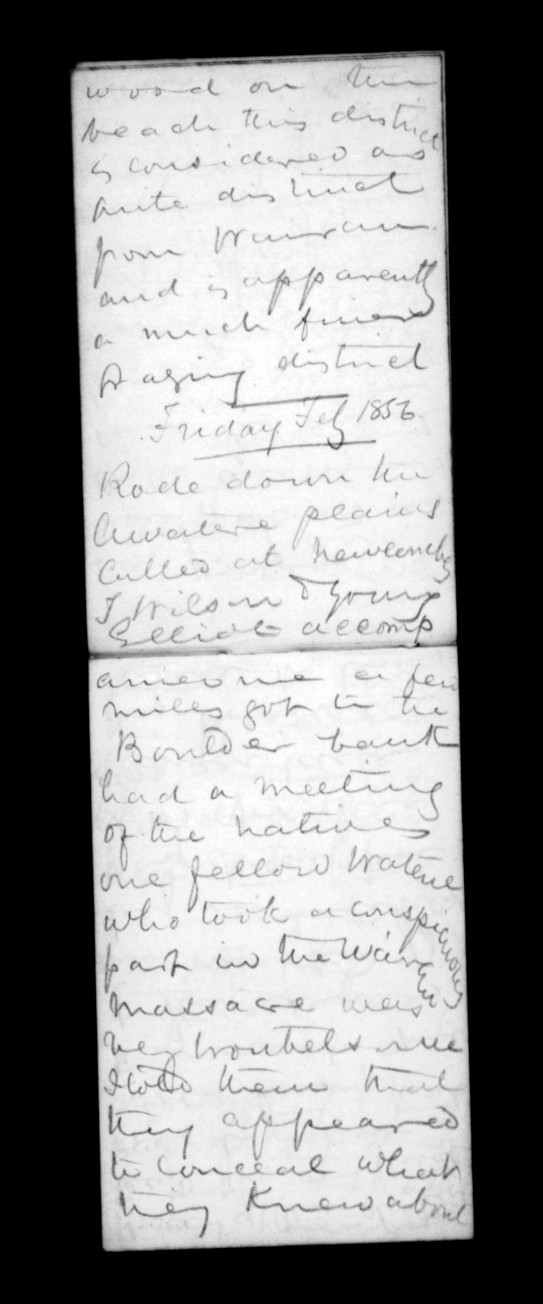 wood on the
beach this district
is considered as
quite distinct
from Wairau
and is apparently
a much finer
grazing district
Friday Feby 1856
Rode down the
Awatere plains
Called at Newcombes
J Wilson & young
Elliot accomp
anied me a few
miles got to the
Boulder bank
had a meeting
of the natives
one fellow Watene
who took a conspicuous
part in the Wairau
Massacre was
very troublesome
I told them that
they appeared
to conceal what
they Knew about